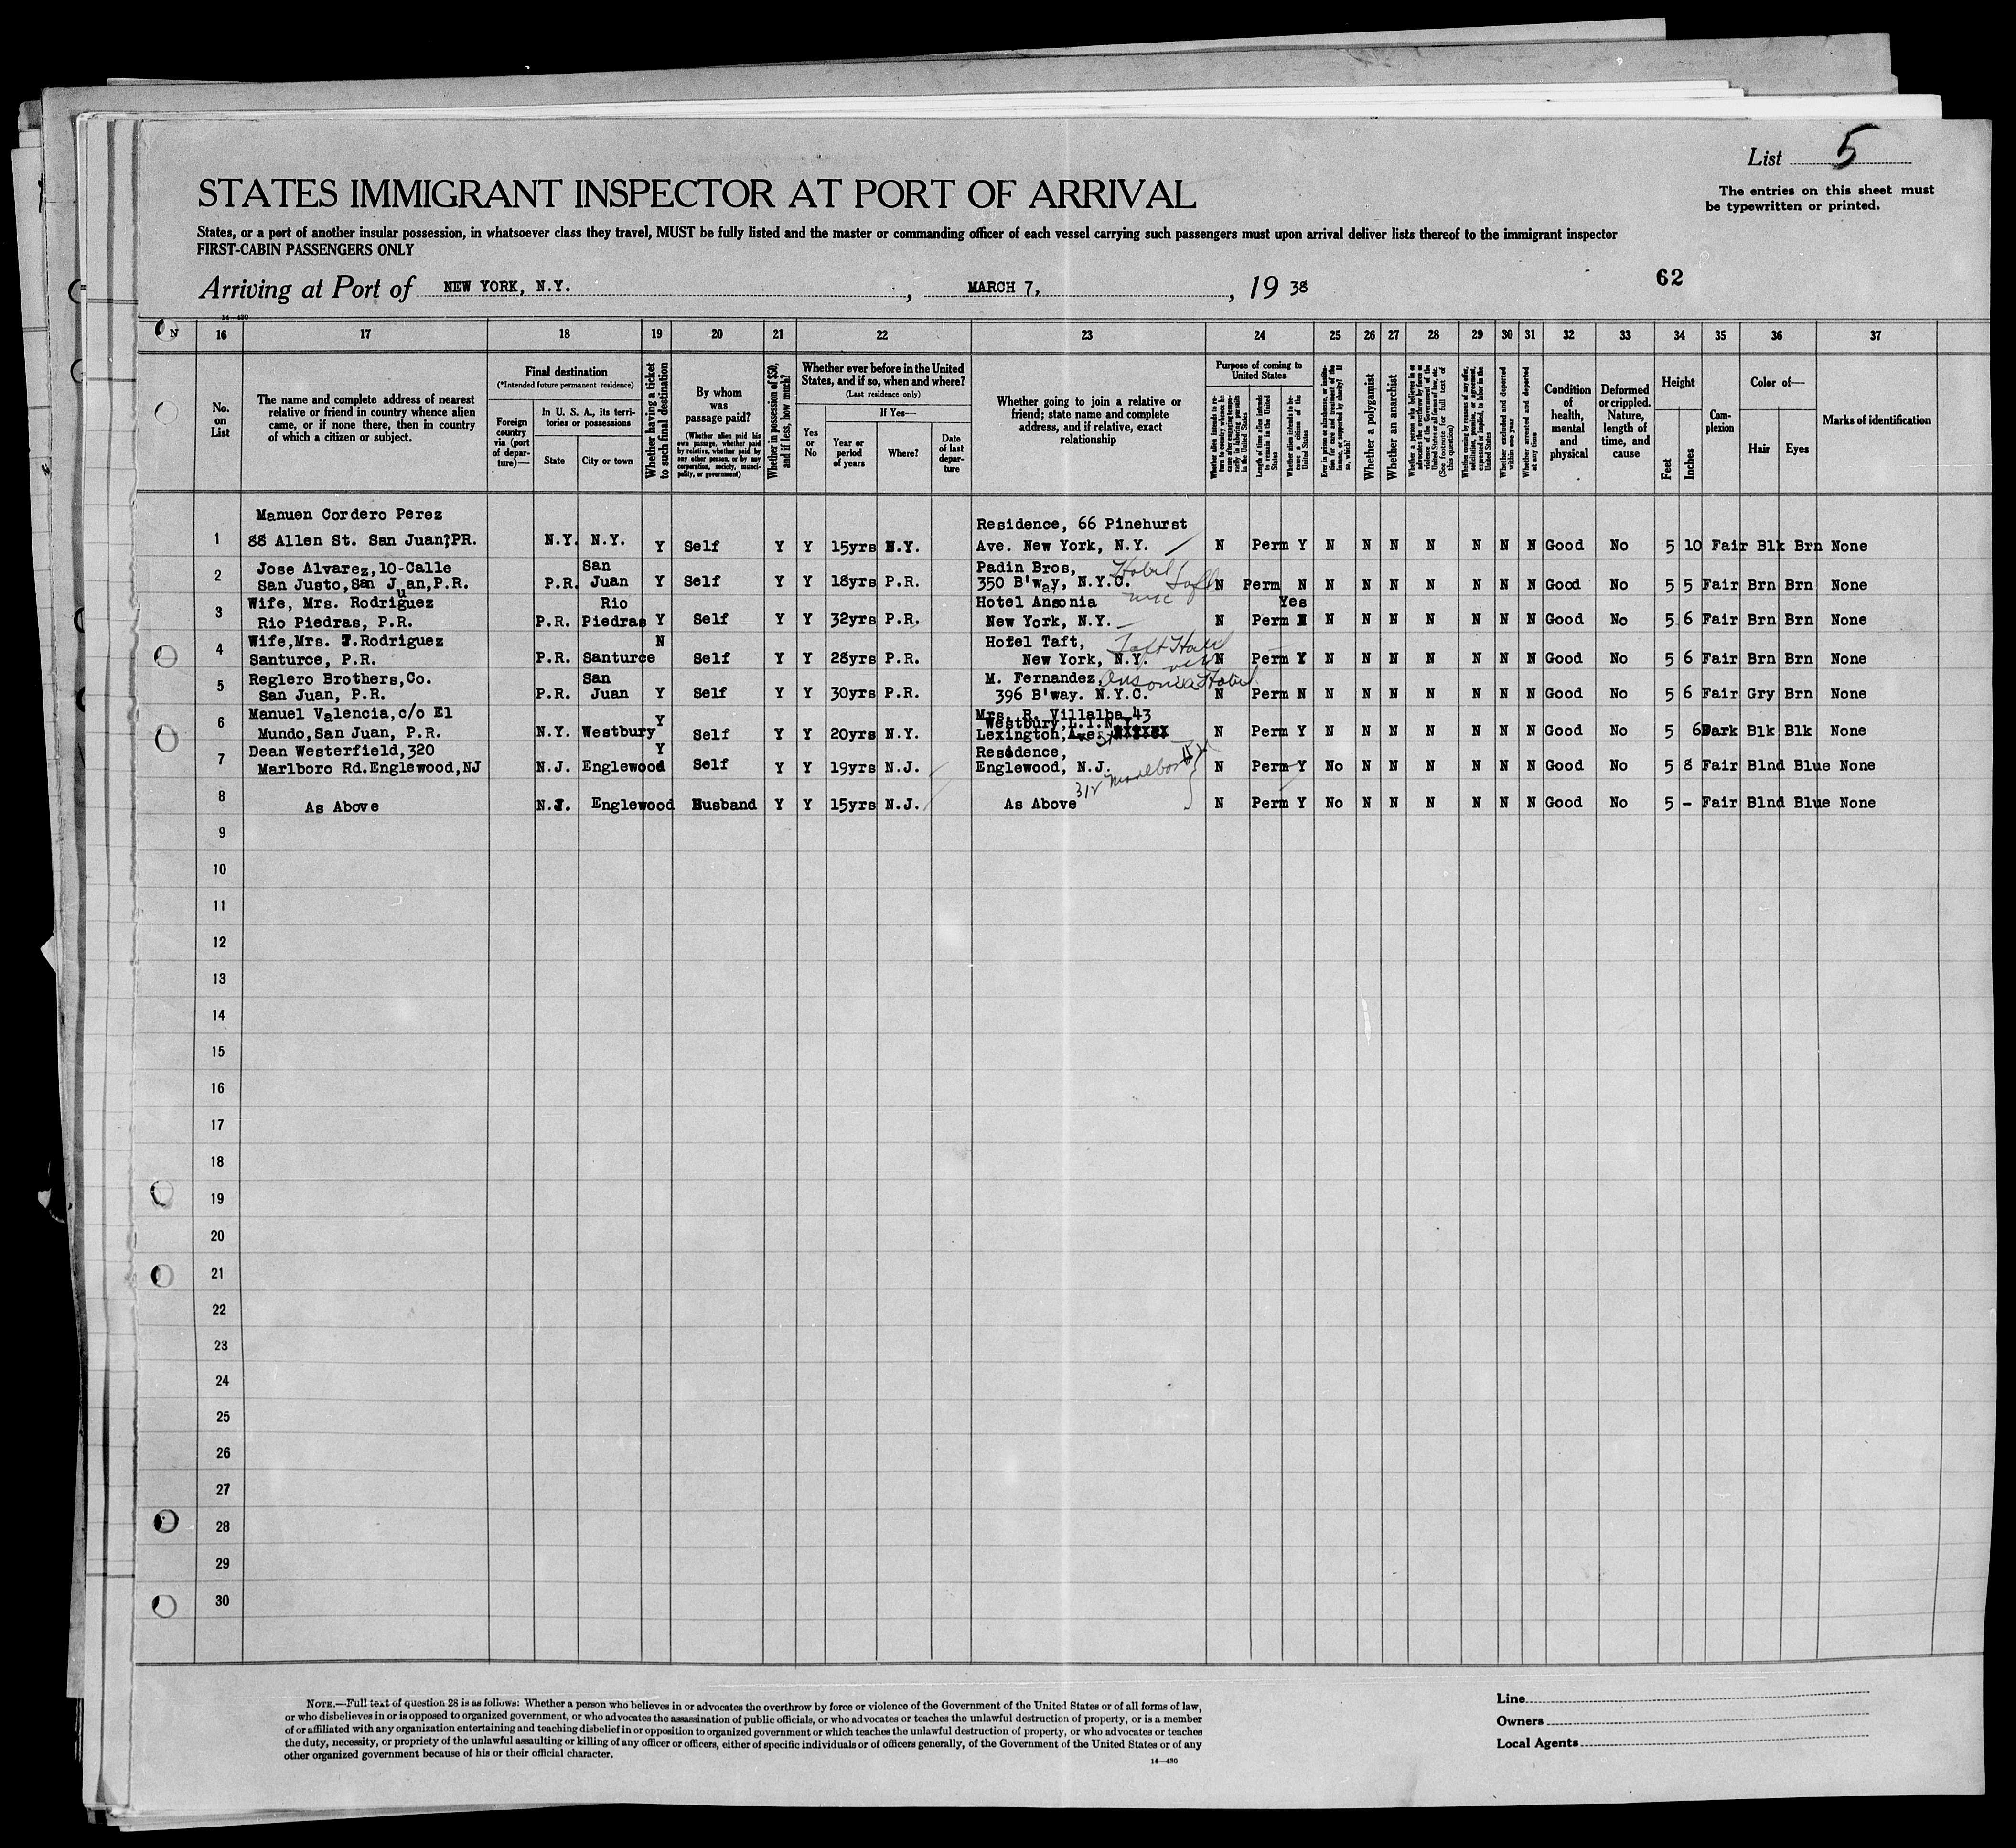 List 5
The entries on this sheet must
be typewritten or printed.
STATES IMMIGRANT INSPECTOR AT PORT OF ARRIVAL
States, or a port of another insular possession, in whatsoever class they travel, MUST be fully listed and the master or commanding officer of each vessel carrying such passengers must upon arrival deliver lists thereof to the immigrant inspector
FIRST-CABIN PASSENGERS ONLY
62
Arriving at Port of NEW YORK, N.Y., MARCH 7, 1938
14—480
N 16 17 18 19 20 21 22 23 24 25 26 27 28 29 30 31 32 33 34 35 36 37
No.
on
List
The name and complete address of nearest
relative or friend in country whence alien
came, or if none there, then in country
of which a citizen or subject.
Final destination
(*Intended future permanent residence)
Foreign
country
via (port
of depar-
ture)—
In U. S. A., its terri-
tories or possessions
State
City or town
Whether having a ticket
to such final destination
By whom
was
passage paid?
(Whether alien paid his
own passage, whether paid
by relative, whether paid by
any other person, or by any
corporation, society, munici-
pality, or government)
Whether in possession of $50,
and if less, how much?
Whether ever before in the United
States, and if so, when and where?
(Last residence only)
Yes
or
No
If Yes—
Year or
period
of years
Where?
Date
of last
depar-
ture
Whether going to join a relative or
friend; state name and complete
address, and if relative, exact
relationship
Purpose of coming to
United States
Whether alien intends to re-
turn to country whence he
came after engaging tempo-
rarily in laboring pursuits
in the United States
Length of time alien intends
to remain in the United
States
Whether alien intends to be-
come a citizen of the
United States
Ever in prison or almshouse, or institu-
tion for care and treatment of the
insane, or supported by charity? If
so, which?
Whether a polygamist
Whether an anarchist
Whether a person who believes in or
advocates the overthrow by force or
violence of the Government of the
United States or all forms of law, etc.
(See footnote for full text of
this question)
Whether coming by reasons of any offer,
solicitation, promise, or agreement,
expressed or implied, to labor in the
United States
Whether excluded and deported
within one year
Whether arrested and deported
at any time
Condition
of
health,
mental
and
physical
Deformed
or crippled.
Nature,
length of
time, and
cause
Height
Feet
Inches
Com-
plexion
Color of—
Hair
Eyes
Marks of identification
Manuen Cordero Perez Residence, 66 Pinehurst
1 88 Allen St. San Juan,PR. N.Y. N.Y. Y Self Y Y 15yrs N.Y. Ave. New York, N.Y. N Perm Y N N N N N N N Good No 5 10 Fair Blk Brn None
Jose Alvarez,10-Calle San Padin Bros, Hotel
2 San Justo,San Juan,P.R. P.R. Juan Y Self Y Y 18yrs P.R. 350 B'way, N.Y.C. Taft N Perm N N N N N N N N Good No 5 5 Fair Brn Brn None
NYC
Wife, Mrs. Rodriguez Rio Hotel Ansonia Yes
3 Rio Piedras, P.R. P.R. Piedras Y Self Y Y 32yrs P.R. New York, N.Y. N Perm N N N N N N N Good No 5 6 Fair Brn Brn None
Wife,Mrs. T.Rodriguez N Hotel Taft, Taft Hotel
4 Santurce, P.R. P.R. Santurce Self Y Y 28yrs P.R. New York, N.Y. N Perm Y N N N N N N N Good No 5 6 Fair Brn Brn None
Reglero Brothers,Co. San M. Fernandez, Ansonia Hotel
5 San Juan, P.R. P.R. Juan Y Self Y Y 30yrs P.R. 396 B'way. N.Y.C. N Perm N N N N N N N N Good No 5 6 Fair Gry Brn None
Manuel Valencia,c/o El Y Mrs. R. Villalba 43
Westbury,L.I.N.Y.
6 Mundo,San Juan, P.R. N.Y. Westbury Self Y Y 20yrs N.Y. Lexington,Ave. N Perm Y N N N N N N N Good No 5 6 Dark Blk Blk None
Dean Westerfield,320 Y Residence,
7 Marlboro Rd.Englewood,NJ N.J. Englewood Self Y Y 19yrs N.J. Englewood, N.J. N Perm Y No N N N N N N Good No 5 8 Fair Blnd Blue None
8 As Above N.J. Englewood Husband Y Y 15yrs N.J. As Above N Perm Y No N N N N N N Good No 5 - Fair Blnd Blue None
9
10
11
12
13
14
15
16
17
18
19
20
21
22
23
24
25
26
27
28
29
30
NOTE.—Full text of question 28 is as follows: Whether a person who believes in or advocates the overthrow by force or violence of the Government of the United States or of all forms of law,
or who disbelieves in or is opposed to organized government, or who advocates the assassination of public officials, or who advocates or teaches the unlawful destruction of property, or is a member
of or affiliated with any organization entertaining and teaching disbelief in or opposition to organized government or which teaches the unlawful destruction of property, or who advocates or teaches
the duty, necessity, or propriety of the unlawful assaulting or killing of any officer or officers, either of specific individuals or of officers generally, of the Government of the United States or of any
other organized government because of his or their official character.
14—480
Line
Owners
Local Agents